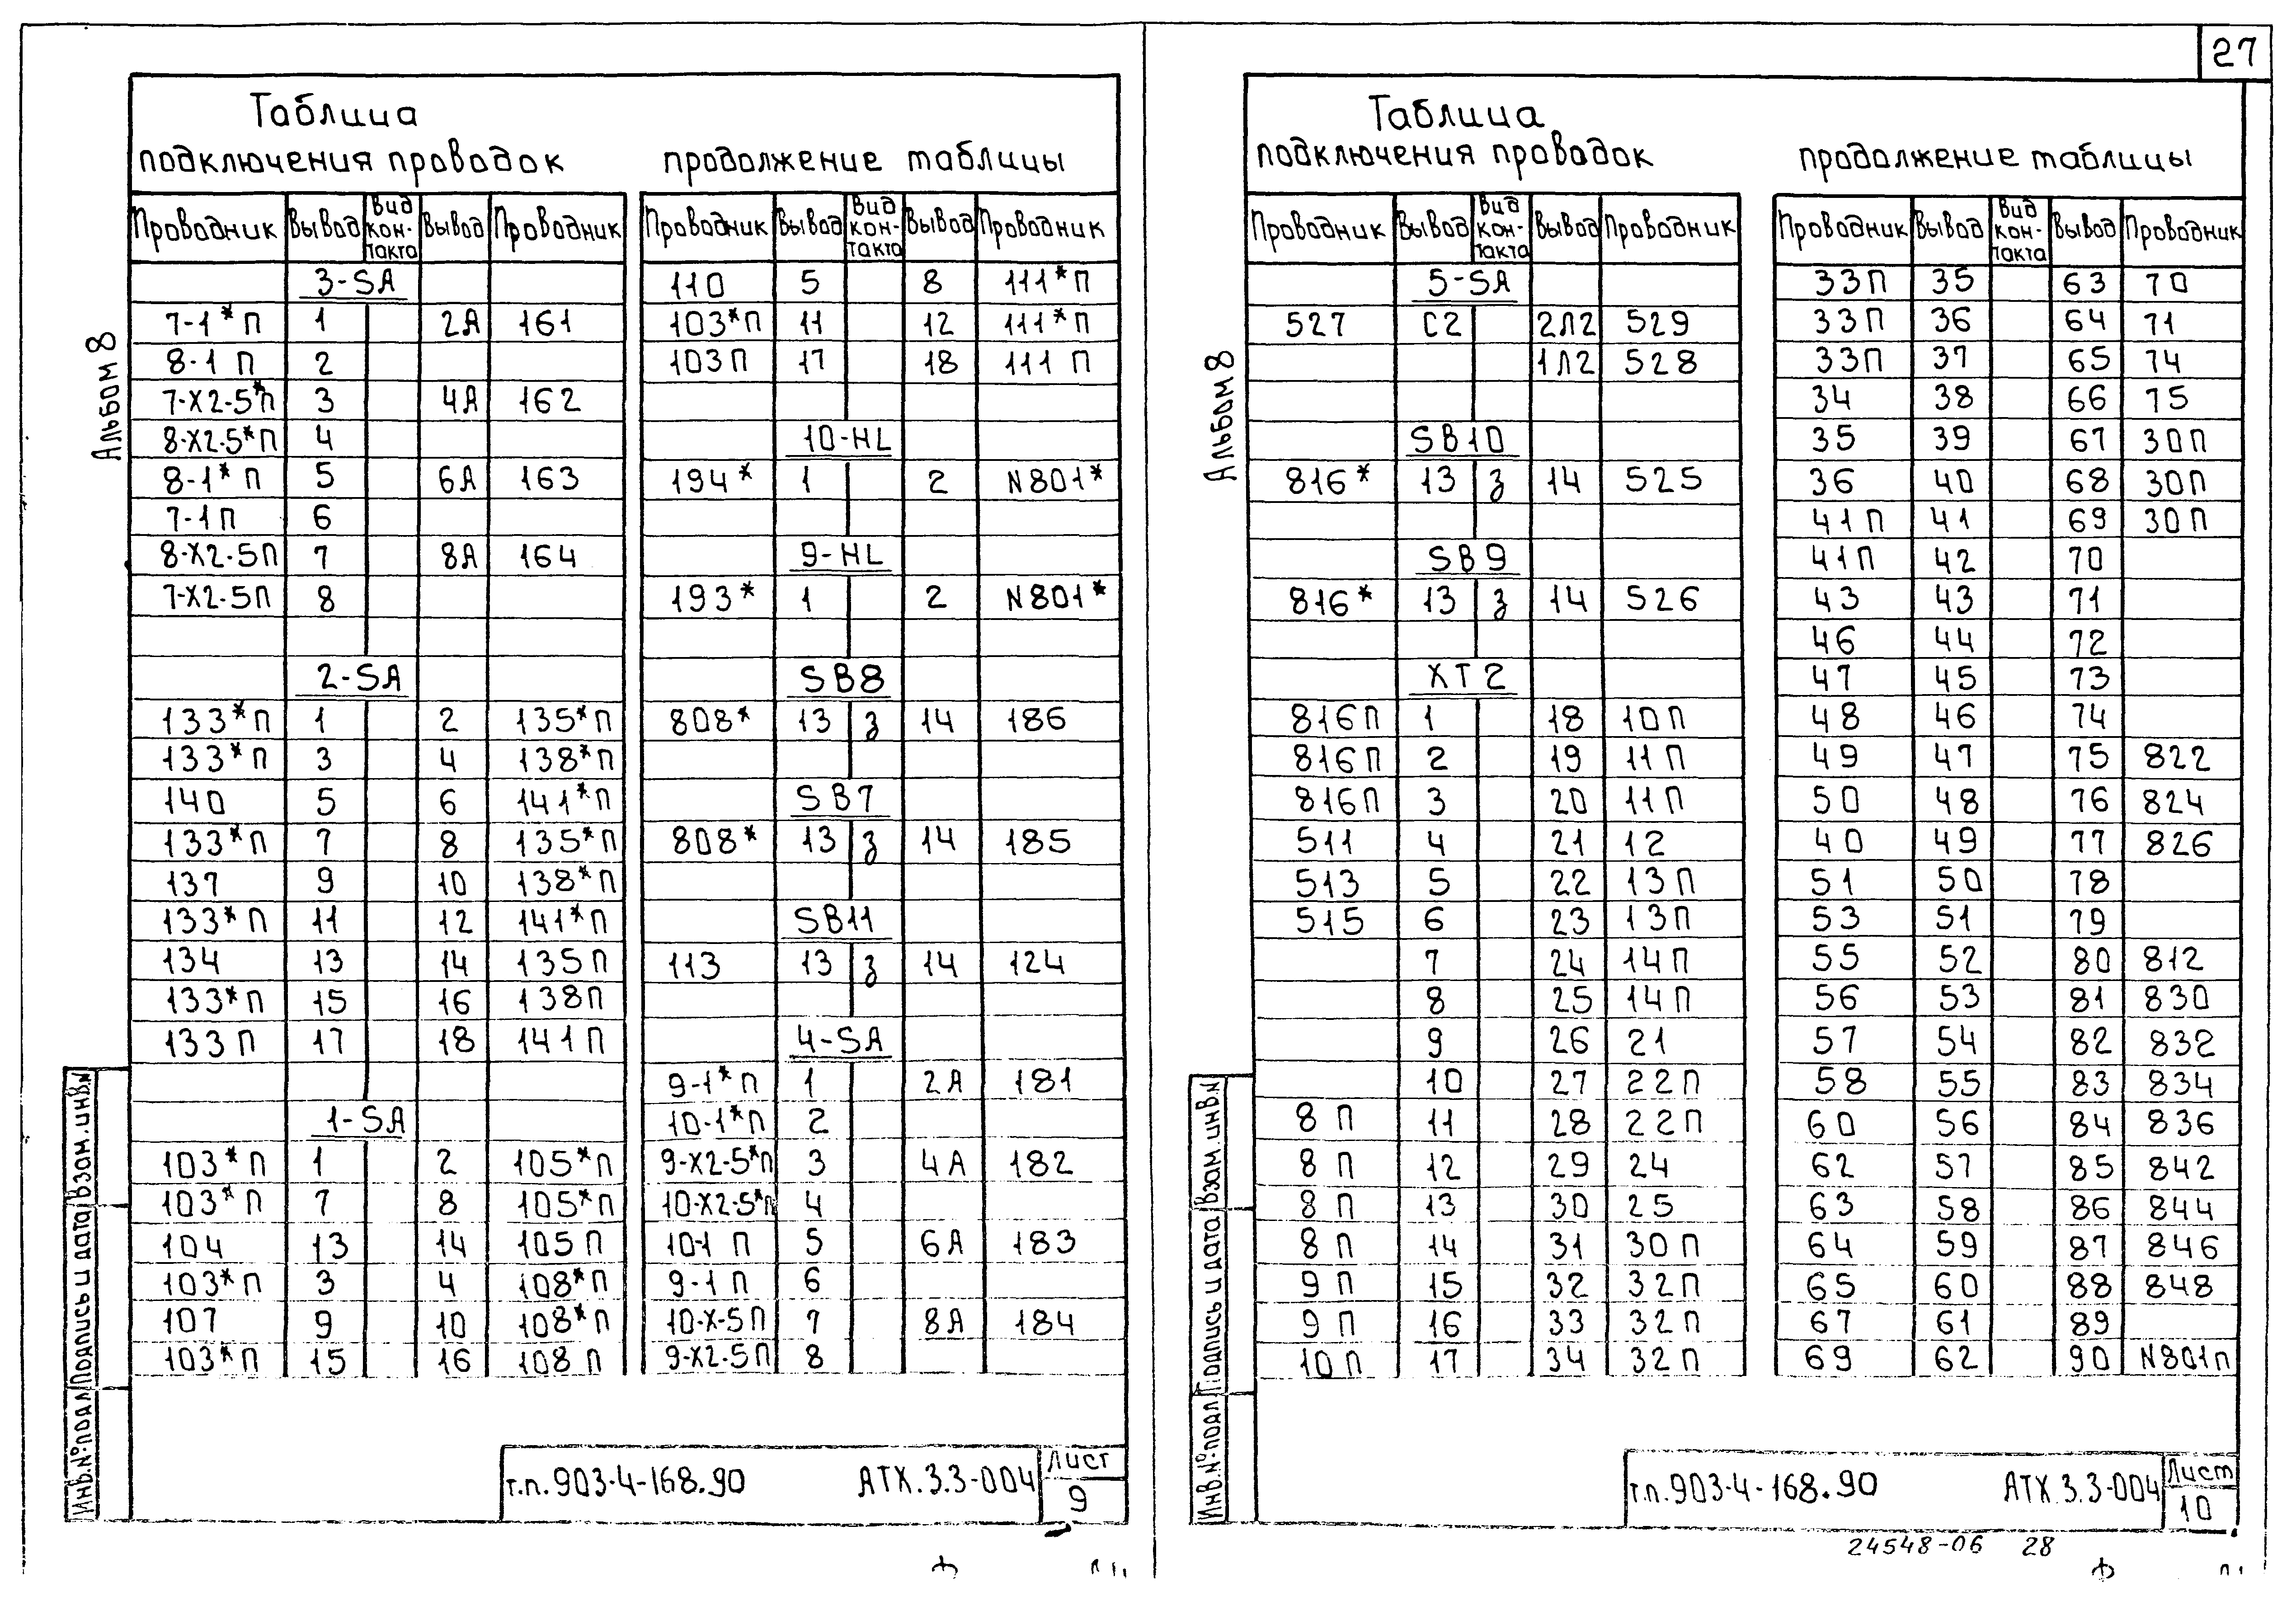 27
Таблица
подключения проводок
продолжение таблицы
Альбом 8
Проводник Вывод Вид контакта Вывод Проводник
3-SA
7-1*П 1 2А 161
8-1 П 2
7-Х2-5*П 3 4А 162
8-Х2-5*П 4
8-1*П 5 6А 163
7-1П 6
8-Х2-5П 7 8А 164
7-Х2-5П 8
2-SA
133*П 1 2 135*П
133*П 3 4 138*П
140 5 6 141*П
133*П 7 8 135*П
137 9 10 138*П
133*П 11 12 141*П
134 13 14 135П
133*П 15 16 138П
133П 17 18 141П
1-SA
103*П 1 2 105*П
103*П 7 8 105*П
104 13 14 105П
103*П 3 4 108*П
107 9 10 108*П
103*П 15 16 108П
Проводник Вывод Вид контакта Вывод Проводник
110 5 8 111*П
103*П 11 12 111*П
103П 17 18 111П
10-HL
194* 1 2 N801*
9-HL
193* 1 2 N801*
SB8
808* 13 з 14 186
SB7
808* 13 з 14 185
SB11
113 13 з 14 124
4-SA
9-1*П 1 2А 181
10-1*П 2
9-Х2-5*П 3 4А 182
10-Х2-5*П 4
10-1 П 5 6А 183
9-1 П 6
10-Х-5П 7 8А 184
9-Х2-5П 8
Инв.№ подл Подпись и дата Взам.инв.№
т.п.903-4-168.90 АТХ.3.3-004 Лист 9
Таблица
подключения проводок
продолжение таблицы
Альбом 8
Проводник Вывод Вид контакта Вывод Проводник
5-SA
527 С2 2Л2 529
1Л2 528
SB10
816* 13 з 14 525
SB9
816* 13 з 14 526
ХТ2
816П 1 18 10П
816П 2 19 11П
816П 3 20 11П
511 4 21 12
513 5 22 13П
515 6 23 13П
7 24 14П
8 25 14П
9 26 21
10 27 22П
8 П 11 28 22П
8 П 12 29 24
8 П 13 30 25
8 П 14 31 30П
9 П 15 32 32П
9 П 16 33 32П
10П 17 34 32П
Проводник Вывод Вид контакта Вывод Проводник
33П 35 63 70
33П 36 64 71
33П 37 65 74
34 38 66 75
35 39 67 30П
36 40 68 30П
41П 41 69 30П
41П 42 70
43 43 71
46 44 72
47 45 73
48 46 74
49 47 75 822
50 48 76 824
40 49 77 826
51 50 78
53 51 79
55 52 80 812
56 53 81 830
57 54 82 832
58 55 83 834
60 56 84 836
62 57 85 842
63 58 86 844
64 59 87 846
65 60 88 848
67 61 89
69 62 90 N801П
Инв.№ подл Подпись и дата Взам.инв.№
т.п.903-4-168.90 АТХ.3.3-004 Лист 10
24548-06 28